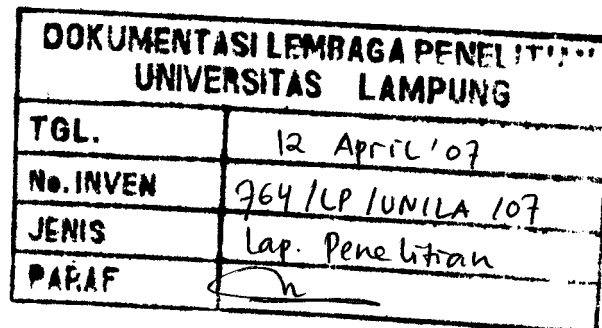 DOKUMENTASI LEMBAGA PENELITIAN
UNIVERSITAS LAMPUNG
TGL. 12 April '07
No. INVEN 764/LP/UNILA/07
JENIS Lap. Penelitian
PARAF